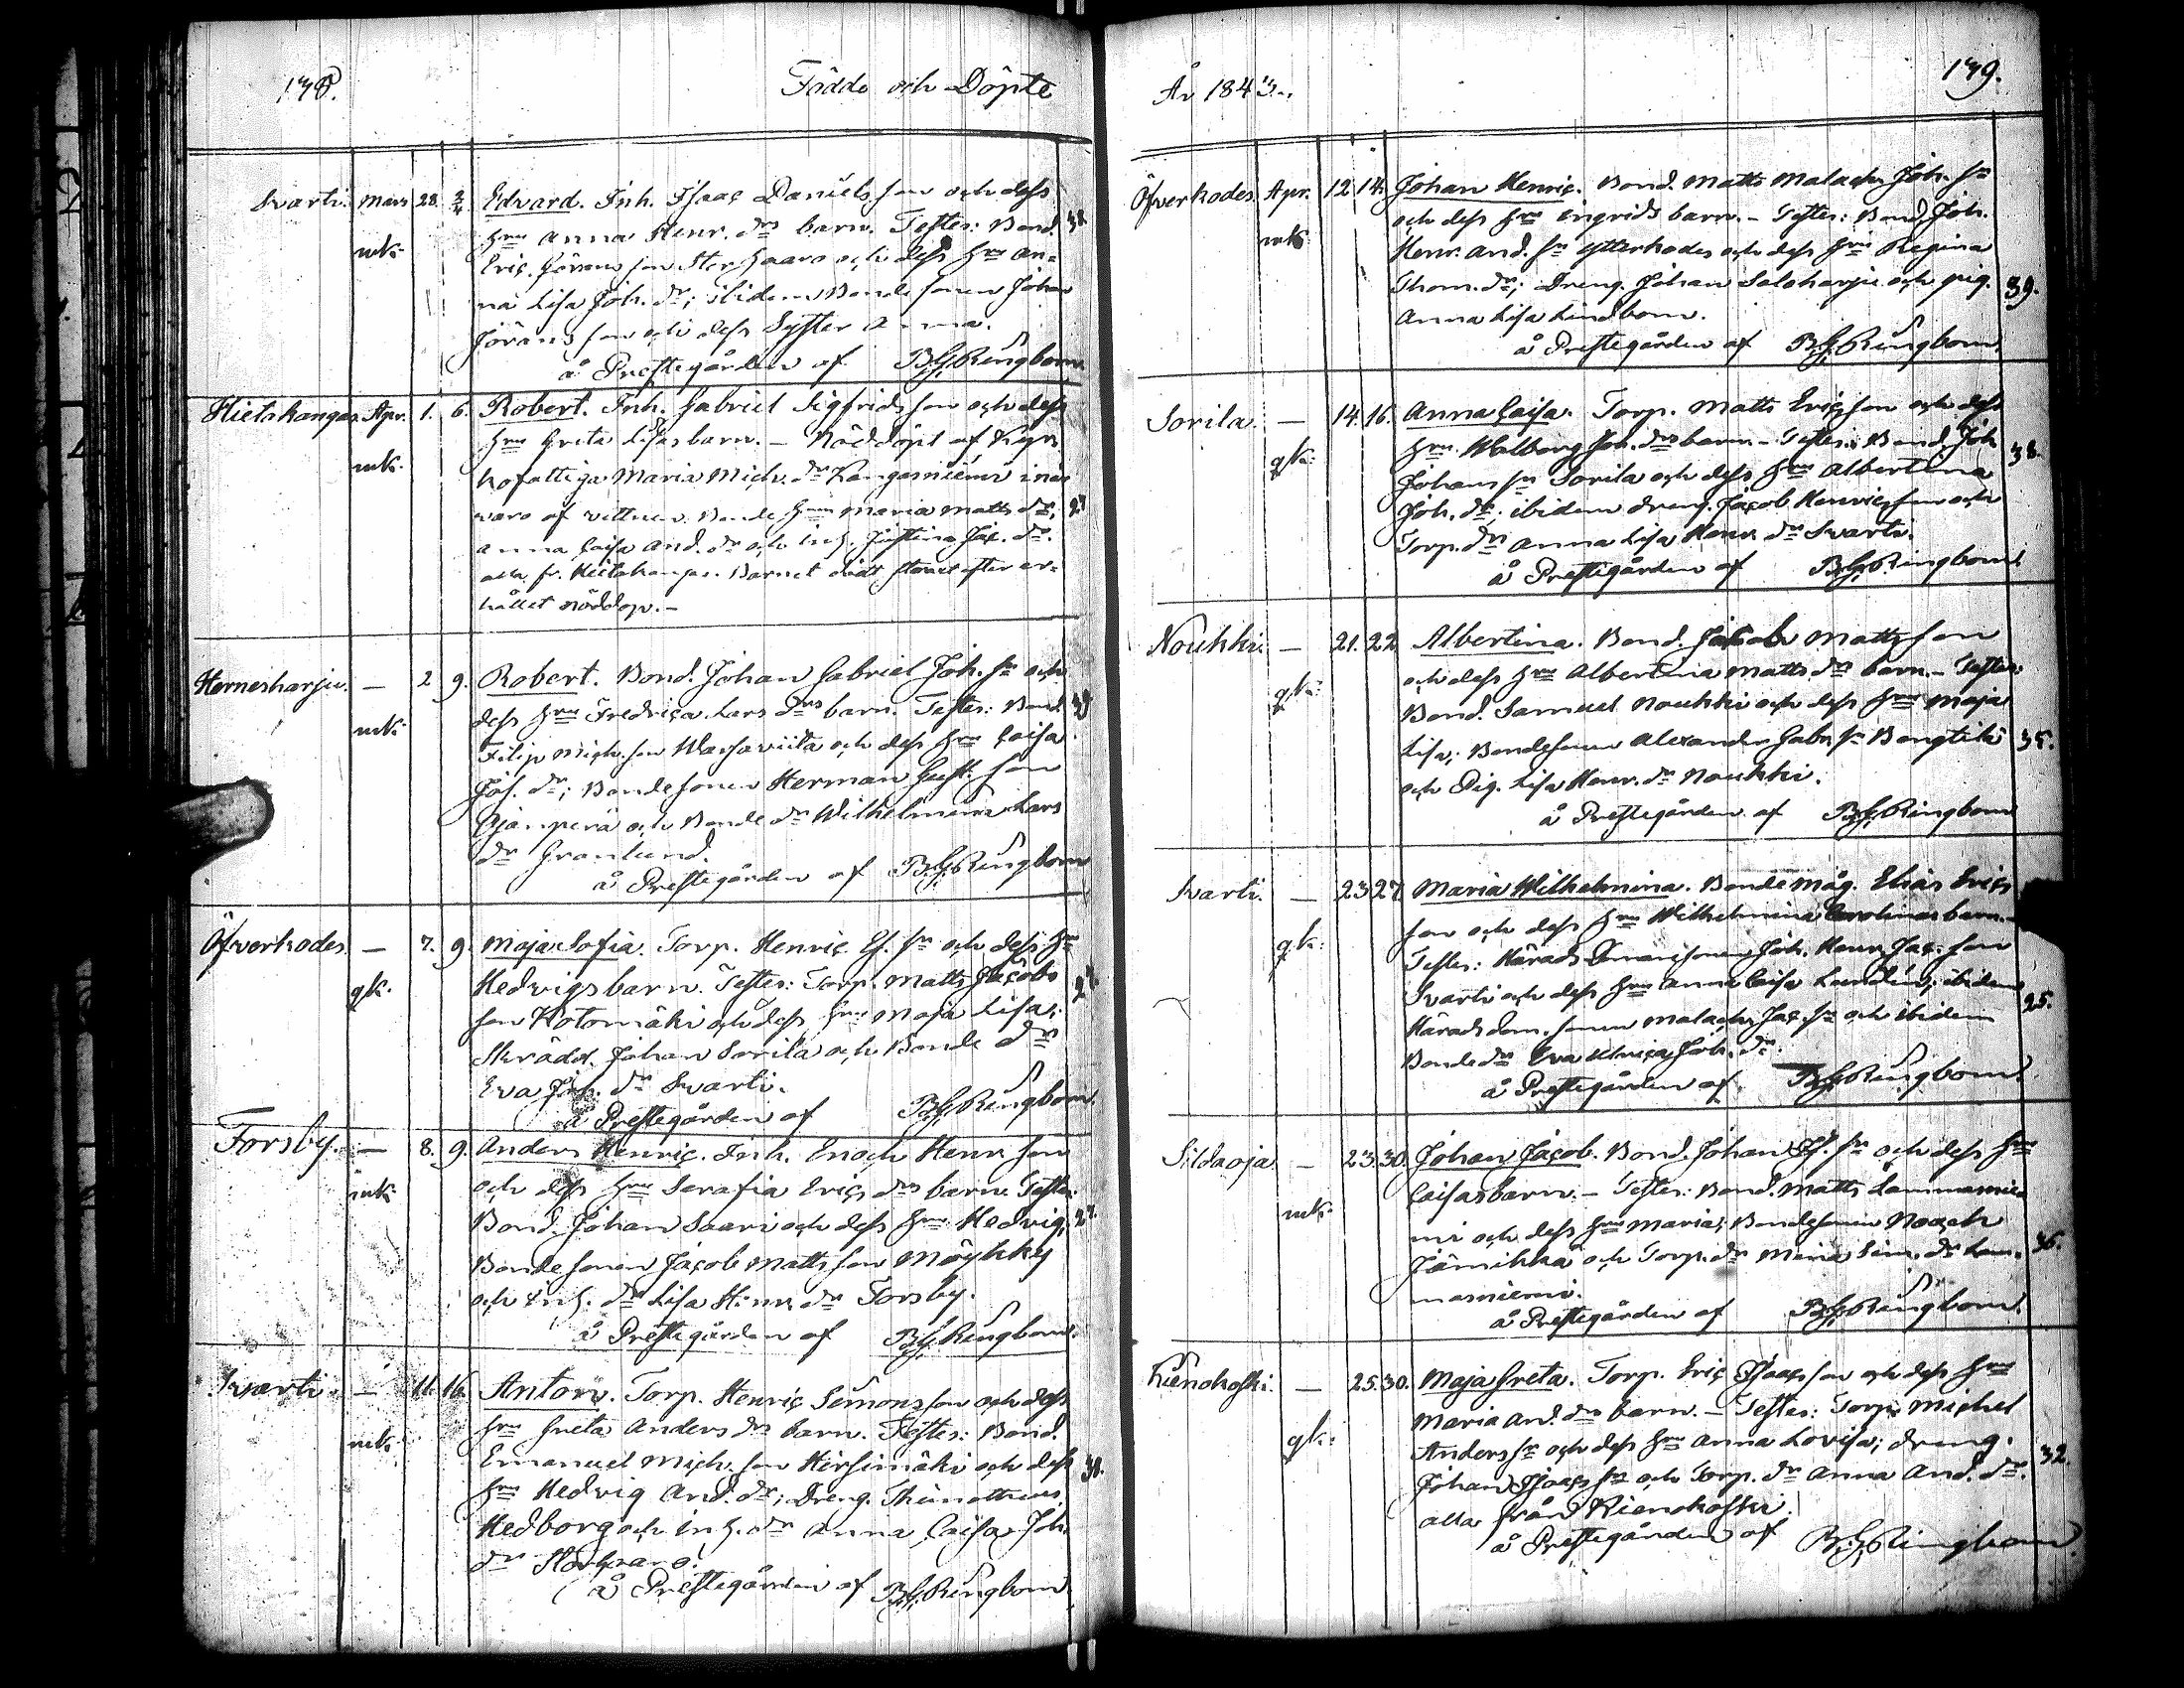 178. Födde och Döpte
Svarti. Mars 28. 2/4 Edvard. Inh. Isaac Daniels son och dess
mk. hru Anna Henr. drs barn. Testes: Bond. 38.
Eric Görans son Storhaara och dess hru An-
na Lisa Joh. dr; ibidem Bondesonen Johan
Jörans son och dess Syster Anna.
å Prestegården af B.G. Ringbom
Hietakangas. Apr. 1. 6. Robert. Inh. Gabriel Sigfrids son och dess
mk. hru Greta Lisas barn. – Nöddöpt af
Maria Mich. dr Kangasniemi i när
varo af vittnen. Bonde hrun Maria Matts dr, 27
Anna Caisa And. dr och Inh. Justina Jac. dr.
alla fr. Hietakangas. Barnet dödt straxt efter er-
hållet nöddop. –
Hernesharju. — 2 9. Robert. Bond. Johan Gabriel Joh. sn och
mk. dess hru Fredrica Lars drs barn. Testes: Bond.
Filip Mich. son Warsaviita och dess hru Caisa
Jos. dr; Bondesonen Herman Gust. son
Ojanperä och Bonde dr Wilhelmina Lars
dr Granlund.
å Prestegården af B.G. Ringbom
Öfverkodes — 7. 9. Maja Sofia. Torp. Henric Es. sn och dess hru
gk. Hedvigs barn. Testes: Torp. Matts Jacobs
son Kotomäki och dess hru Maja Lisa;
Skrädd. Johan Sorila och Bonde dr
Eva Joh. dr Svarti.
å Prestegården af B.G. Ringbom.
Forsby. — 8. 9. Anders Henric. Inh. Enoch Henr. son
mk. och dess hru Serafia Erics drs barn. Testes:
Bond. Johan Saari och dess hru Hedvig; 27.
Bondesonen Jacob Matts son Möykky
och Inh. dr Lisa Henr. dr Forsby.
å Prestegården af B.G. Ringbom.
Svarti. — 11. 16. Anton. Torp. Henric Simons son och dess
mk. hru Greta Anders drs barn. Testes: Bond.
Emanuel Mich. son Hirsimäki och dess 38.
hru Hedvig And. dr; Dreng. Thimotheus
Hedborg och Inh. dr Anna Caisa Joh.
dr Storhaara.
å Prestegården af B.G. Ringbom
År 1843. 179.
Öfverkodes Apr. 12. 14. Johan Henric. Bond. Matts Malach. Joh. sn
mk. och dess hru Ingrids barn. – Testes: Bond. Joh.
Henr. And. sn Ytterkodes och dess hru Regina
Thom. dr; Dreng. Johan Saloharju och pig. 39.
Anna Lisa Lindbom.
å Prestegården af B.G. Ringbom.
Sorila. — 14. 16. Anna Caisa. Torp. Matts Erics son och dess
gk. hru Walborg Joh. drs barn. – Testes: Bond. Joh. 38.
Johans sn Sorila och dess hru Albertina
Joh. dr; ibidem dreng. Jacob Henrics son och
Torp. dr Anna Lisa Henr. dr Svarti.
å Prestegården af B.G. Ringbom.
Noukki — 21. 22 Albertina. Bond. Jacob Matts son
gk. och dess hru Albertina Matts drs barn. – Testes:
Bond. Samuel Noukki och dess hru Maja
Lisa; Bondesonen Alexander Gabr. sn Bengtilä 35.
och Pig. Lisa Henr. dr Noukki.
å Prestegården af B.G. Ringbom
Svarti. — 23 27 Maria Wilhelmina. Bonde måg. Elias Erics
gk. son och dess hru Wilhelmina Carolinas barn. –
Testes: Härads Domaresonen Joh. Henr. Jac. son
Svarti och dess hru Anna Caisa Lundén; ibidem 25.
Häradsdom. sonen Malach. Jac. sn och ibidem
Bonde dr Eva Ulrica Joh. dr.
å Prestegården af B.G. Ringbom.
Sildaoja. — 23. 30. Johan Jacob. Bond. Johan Es. sn och dess hru
mk. Caisas barn. – Testes: Bond. Matts Lammasnie-
mi och dess hru Maria; Bondesonen Noach
Jämikkä och Torp. dr Maria Sim. dr Lam- 36.
masniemi.
å Prestegården af B.G. Ringbom.
Kienokoski. — 25. 30. Maja Greta. Torp. Eric Isaacs son och dess hru
gk. Maria And. drs barn. – Testes: Torp. Michel
Anders sn och dess hru Anna Lovisa; dreng. 32.
Johan Isaacs sn och Torp. dr Anna And. dr.
alla från Kienokoski.
å Prestegården af B.G. Ringbom.